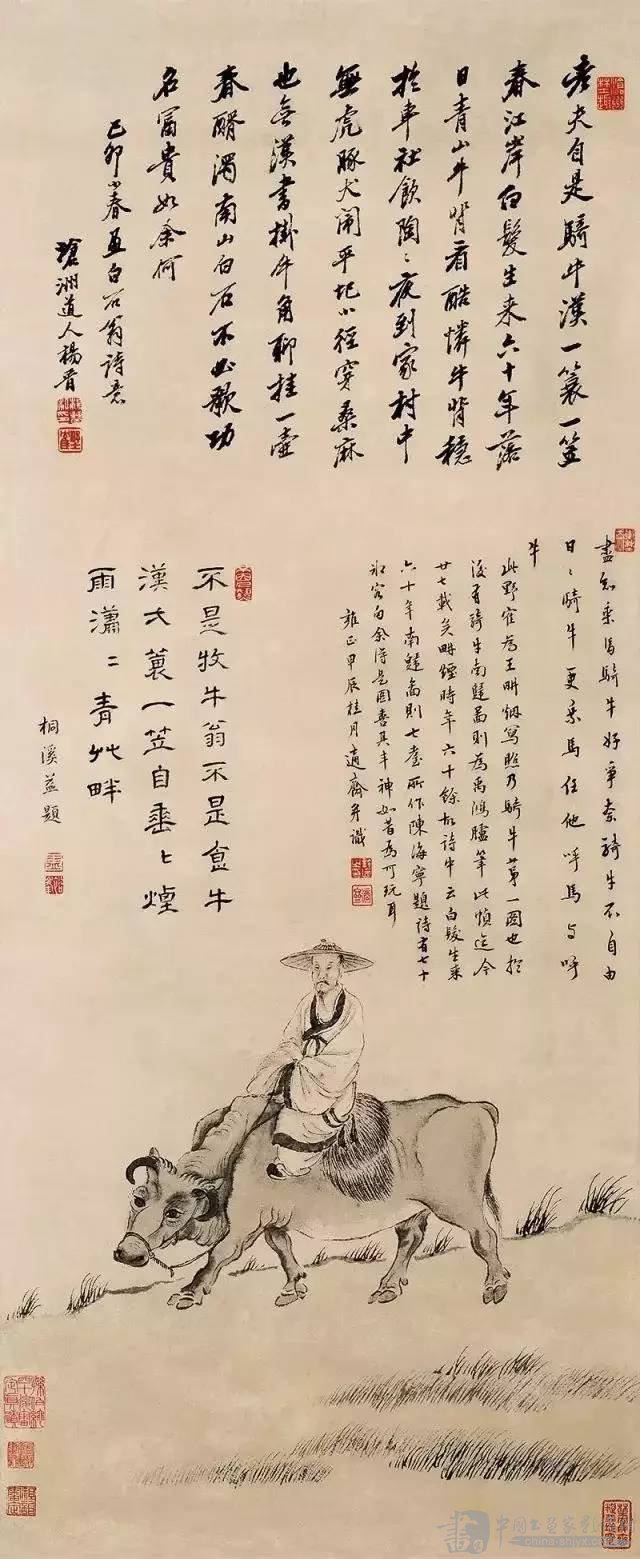 老夫自是騎牛漢一蓑一笠
春江岸白髮生来六十年落
日青山牛背看酷憐牛背穩
於車社飲陶〻夜到家村中
無虎豚犬閙平圯小徑穿桑麻
也無漢書掛牛角聊挂一壺
春醑濁南山白石不必歌功
名富貴如余何
己卯小春白石翁詩意
洲道人楊晋
盡知乘馬騎牛好爭奈騎牛不自由
日〻騎牛更乘馬任他呼馬与呼
牛
此野崔為王畊烟寫照乃騎牛第一圖也於
後有騎牛南啚則為禹鴻臚筆此幀迄今
廿七載矣畊煙時年六十餘故詩牛云白髮生来
六十年南啚則七耋所作陳海寧題詩有七十
余得是圖喜其丰神如昔為可玩耳
雍正甲辰桂月適齋并識
不是牧牛翁不是食牛
漢弌蓑一笠自垂〻煙
雨瀟〻青艸畔
桐溪益題